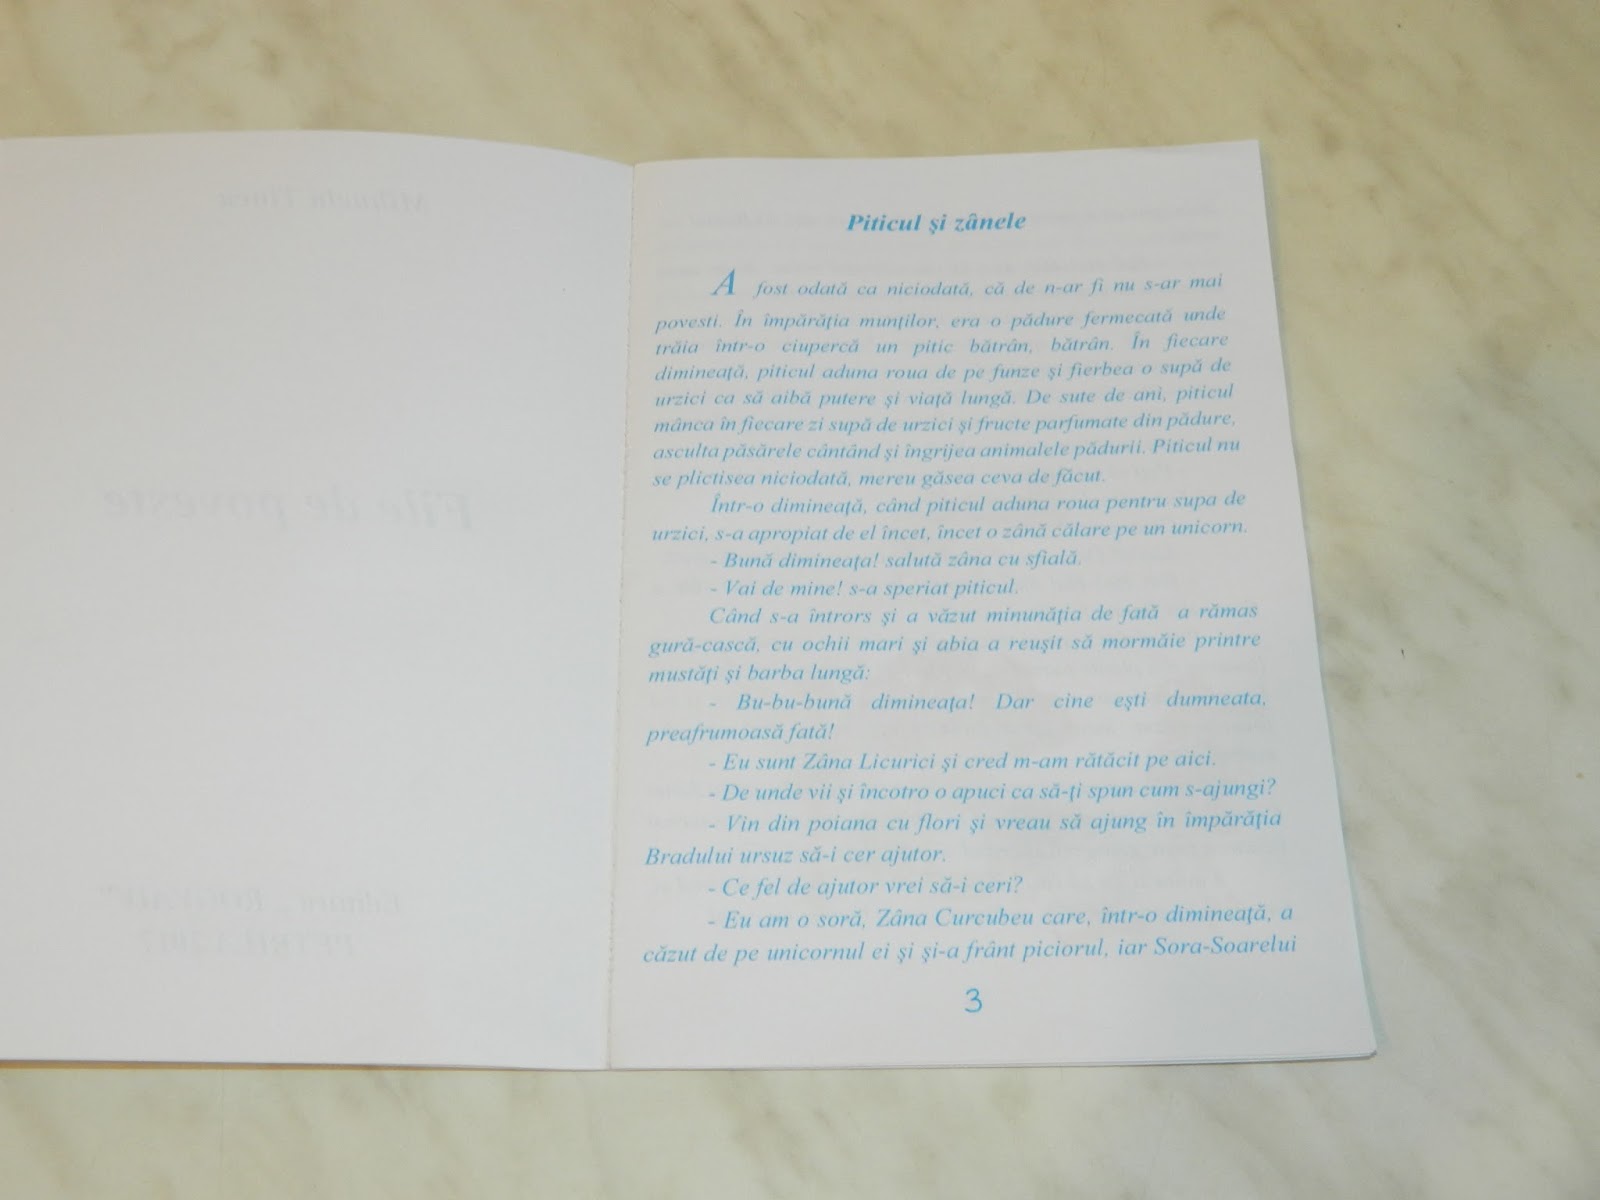 Piticul şi zânele
A fost odată ca niciodată, că de n-ar fi nu s-ar mai
povesti. În împărăţia munţilor, era o pădure fermecată unde
trăia într-o ciupercă un pitic bătrân, bătrân. În fiecare
dimineaţă, piticul aduna roua de pe funze şi fierbea o supă de
urzici ca să aibă putere şi viaţă lungă. De sute de ani, piticul
mânca în fiecare zi supă de urzici şi fructe parfumate din pădure,
asculta păsărele cântând şi îngrijea animalele pădurii. Piticul nu
se plictisea niciodată, mereu găsea ceva de făcut.
Într-o dimineaţă, când piticul aduna roua pentru supa de
urzici, s-a apropiat de el încet, încet o zână călare pe un unicorn.
- Bună dimineaţa! salută zâna cu sfială.
- Vai de mine! s-a speriat piticul.
Când s-a întrors şi a văzut minunăţia de fată a rămas
gură-cască, cu ochii mari şi abia a reuşit să mormăie printre
mustăţi şi barba lungă:
- Bu-bu-bună dimineaţa! Dar cine eşti dumneata,
preafrumoasă fată!
- Eu sunt Zâna Licurici şi cred m-am rătăcit pe aici.
- De unde vii şi încotro o apuci ca să-ţi spun cum s-ajungi?
- Vin din poiana cu flori şi vreau să ajung în împărăţia
Bradului ursuz să-i cer ajutor.
- Ce fel de ajutor vrei să-i ceri?
- Eu am o soră, Zâna Curcubeu care, într-o dimineaţă, a
căzut de pe unicornul ei şi şi-a frânt piciorul, iar Sora-Soarelui
3